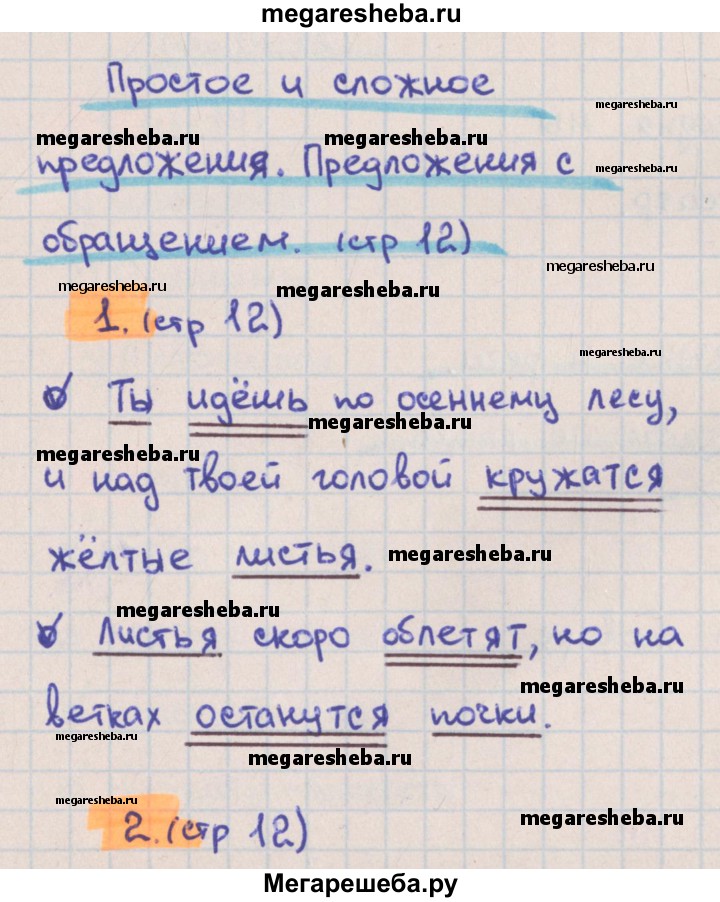 megaresheba.ru
Простое и сложное
megaresheba.ru
megaresheba.ru megaresheba.ru
предложения. Предложения с
megaresheba.ru
обращением. (стр 12)
megaresheba.ru
megaresheba.ru megaresheba.ru
1. (стр 12)
megaresheba.ru
Ты идёшь по осеннему лесу,
megaresheba.ru
megaresheba.ru
и над твоей головой кружатся
жёлтые листья. megaresheba.ru
megaresheba.ru
Листья скоро облетят, но на
megaresheba.ru
ветках останутся почки.
megaresheba.ru
megaresheba.ru
megaresheba.ru
2. (стр 12) megaresheba.ru
Мегарешеба.ру